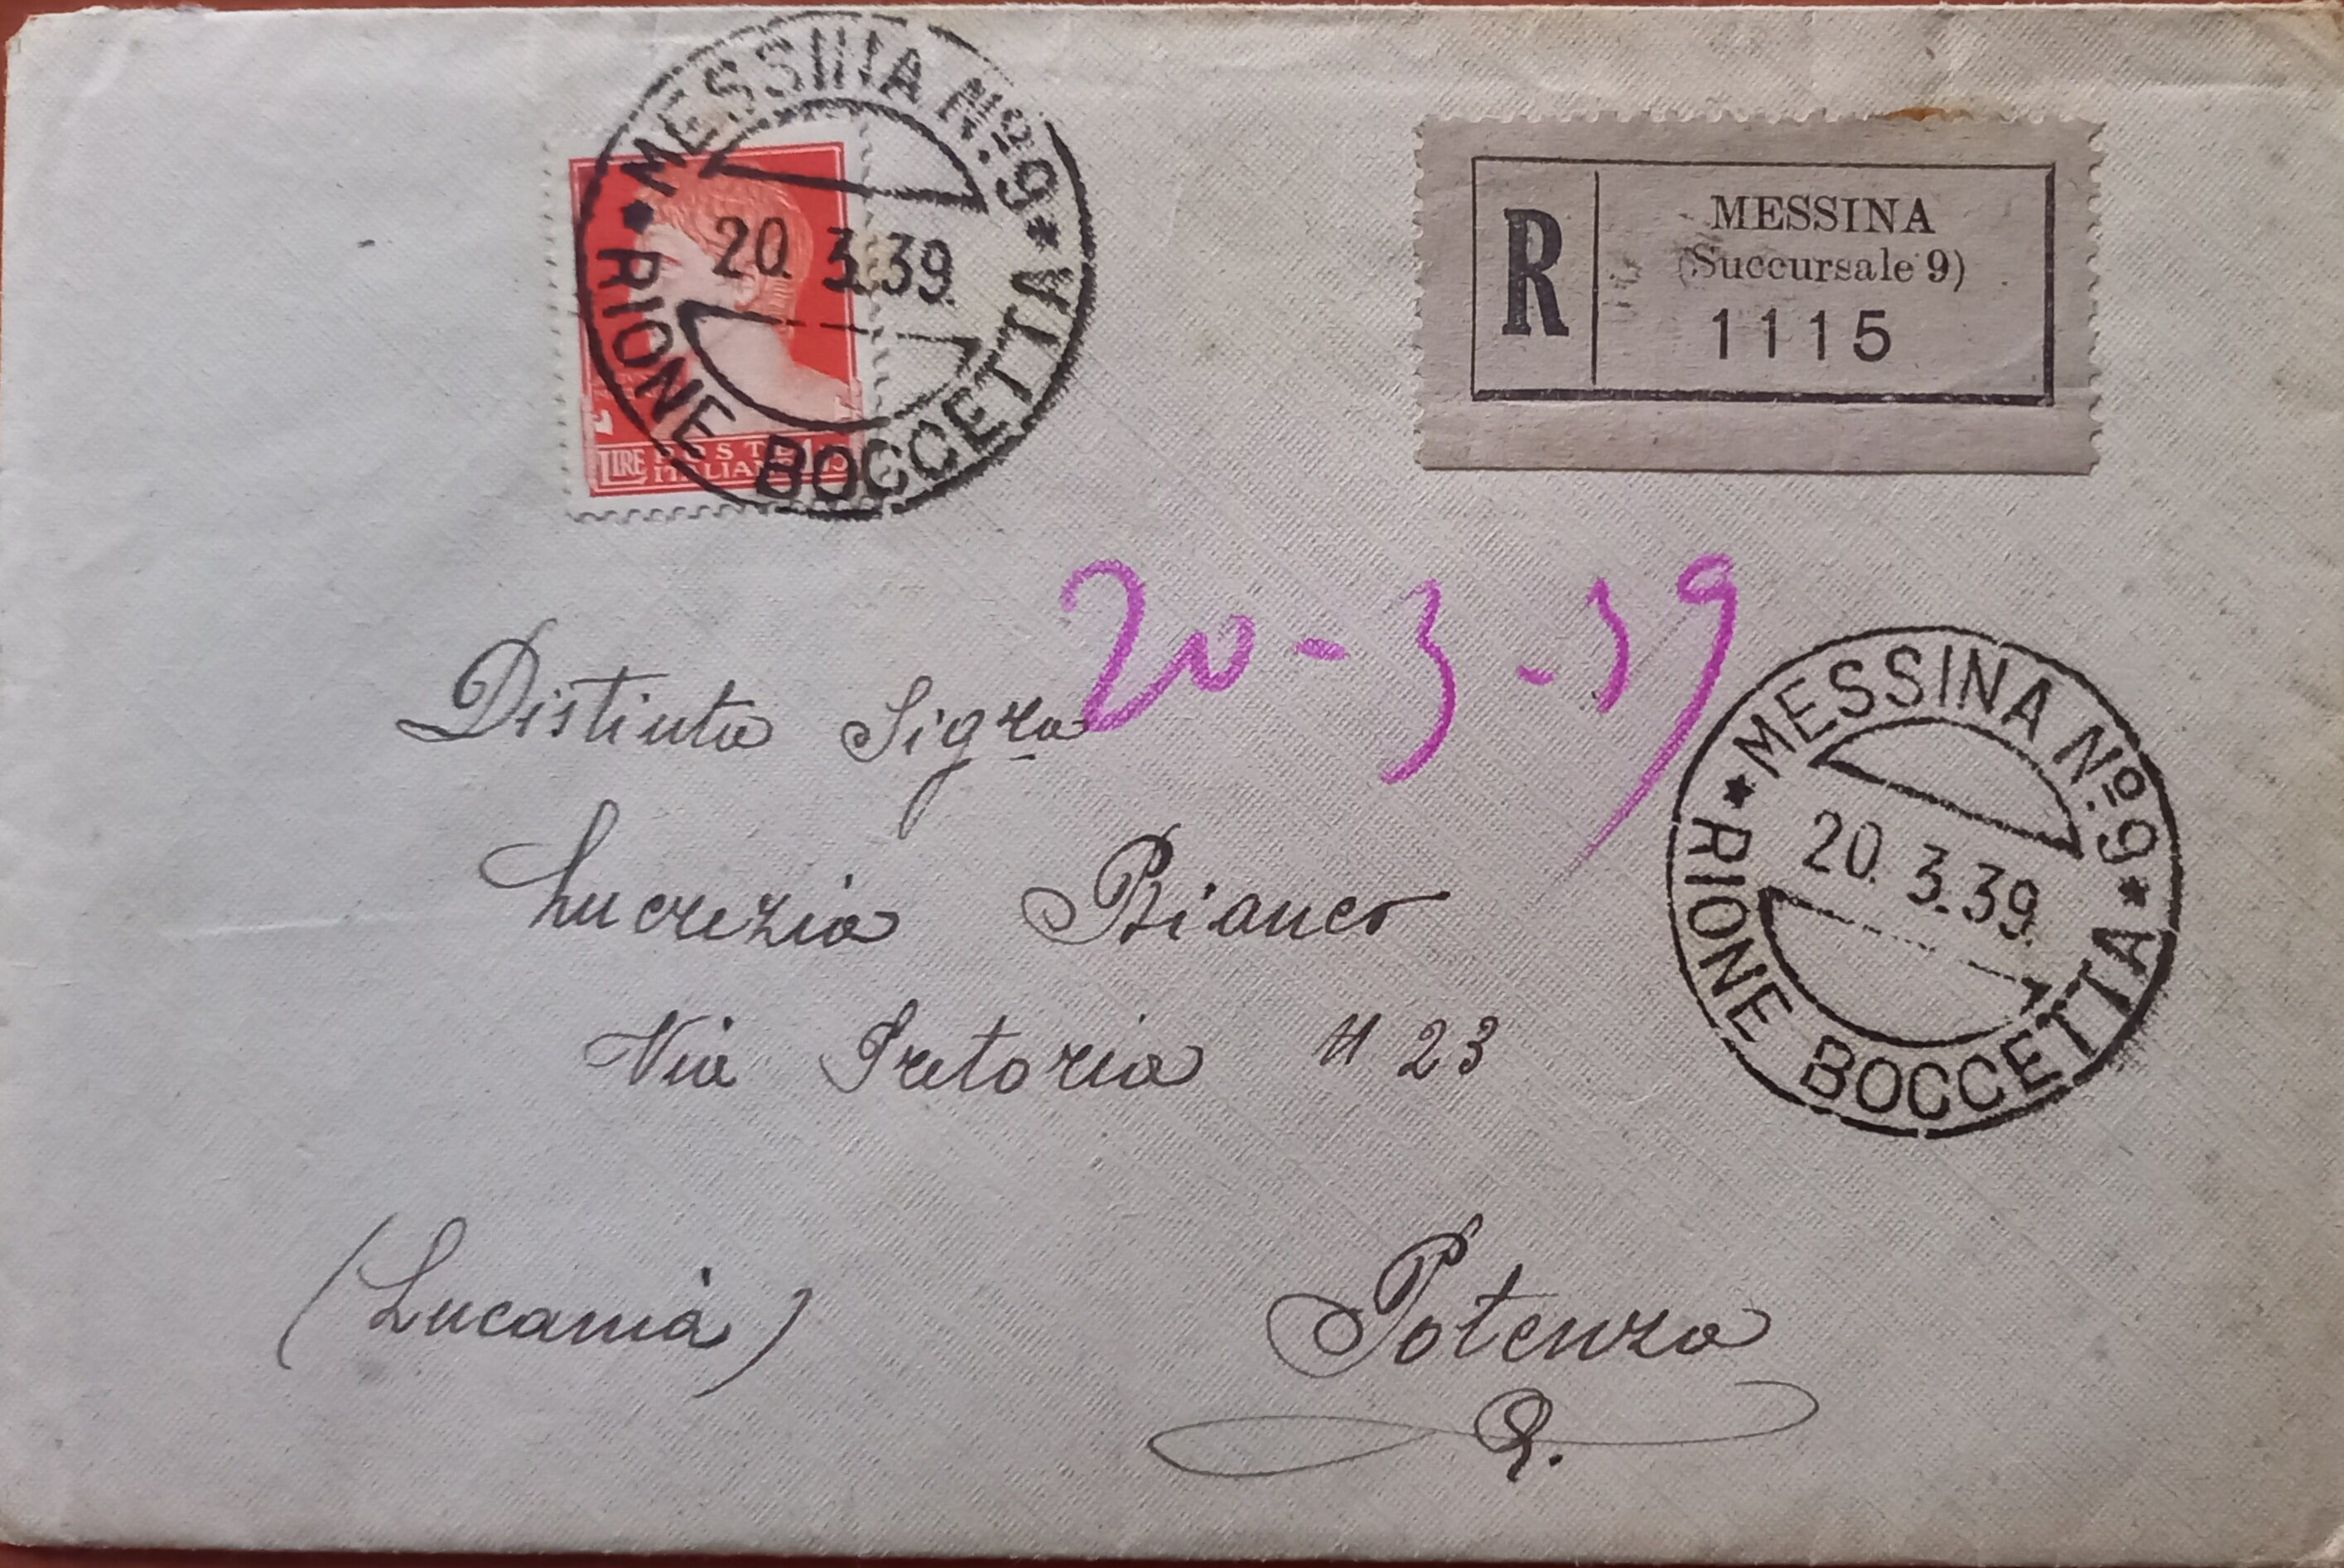 MESSINA Nº.9
20.3.39.
RIONE BOCCETTA
LIRE POSTE 1,75
ITALIANE
R
MESSINA
(Succursale 9)
1115
20-3-39
Distinta Sigra
Lucrezia Bianco
Via Pretoria N 23
MESSINA Nº.9
20.3.39.
RIONE BOCCETTA
(Lucania) Potenza